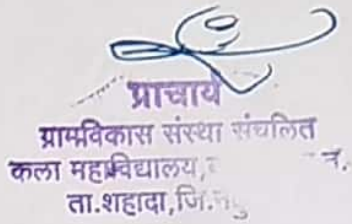 प्राचार्य
ग्रामविकास संस्था संचलित
कला महाविद्यालय,
ता.शहादा,जि.